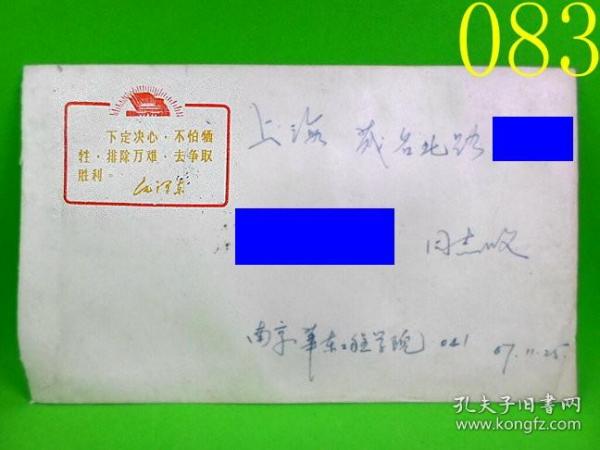 083
下定决心·不怕牺
牲·排除万难·去争取
胜利。
毛泽东
上海 茂名北路
同志收
南京 华东工程学院 041 67.11.25.
孔夫子旧书网
www.kongfz.com